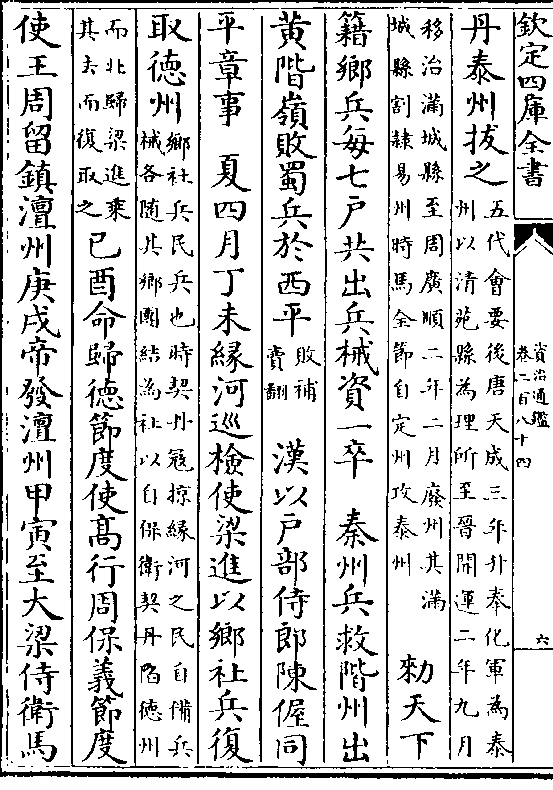 欽定四庫全書
資治通鑑
卷二百八十四
六
丹泰州拔之
五代會要後唐天成三年升奉化軍為泰
州以清苑縣為理所至晉開運二年九月
移治滿城縣至周廣順二年二月廢州其滿
城縣割隸易州時馬全節自定州攻泰州
勑天下
籍鄉兵每七戶共出兵械資一卒　秦州兵救階州出
黃階嶺敗蜀兵於西平
敗補
賣翻
漢以戶部侍郎陳偓同
平章事　夏四月丁未緣河巡檢使梁進以鄉社兵復
取德州
鄉社兵民兵也時契丹寇掠緣河之民自備兵
械各隨其鄉團結為社以自保衛契丹陷德州
而北歸梁進乘
其去而復取之
己酉命歸德節度使髙行周保義節度
使王周留鎮澶州庚戌帝發澶州甲寅至大梁侍衛馬